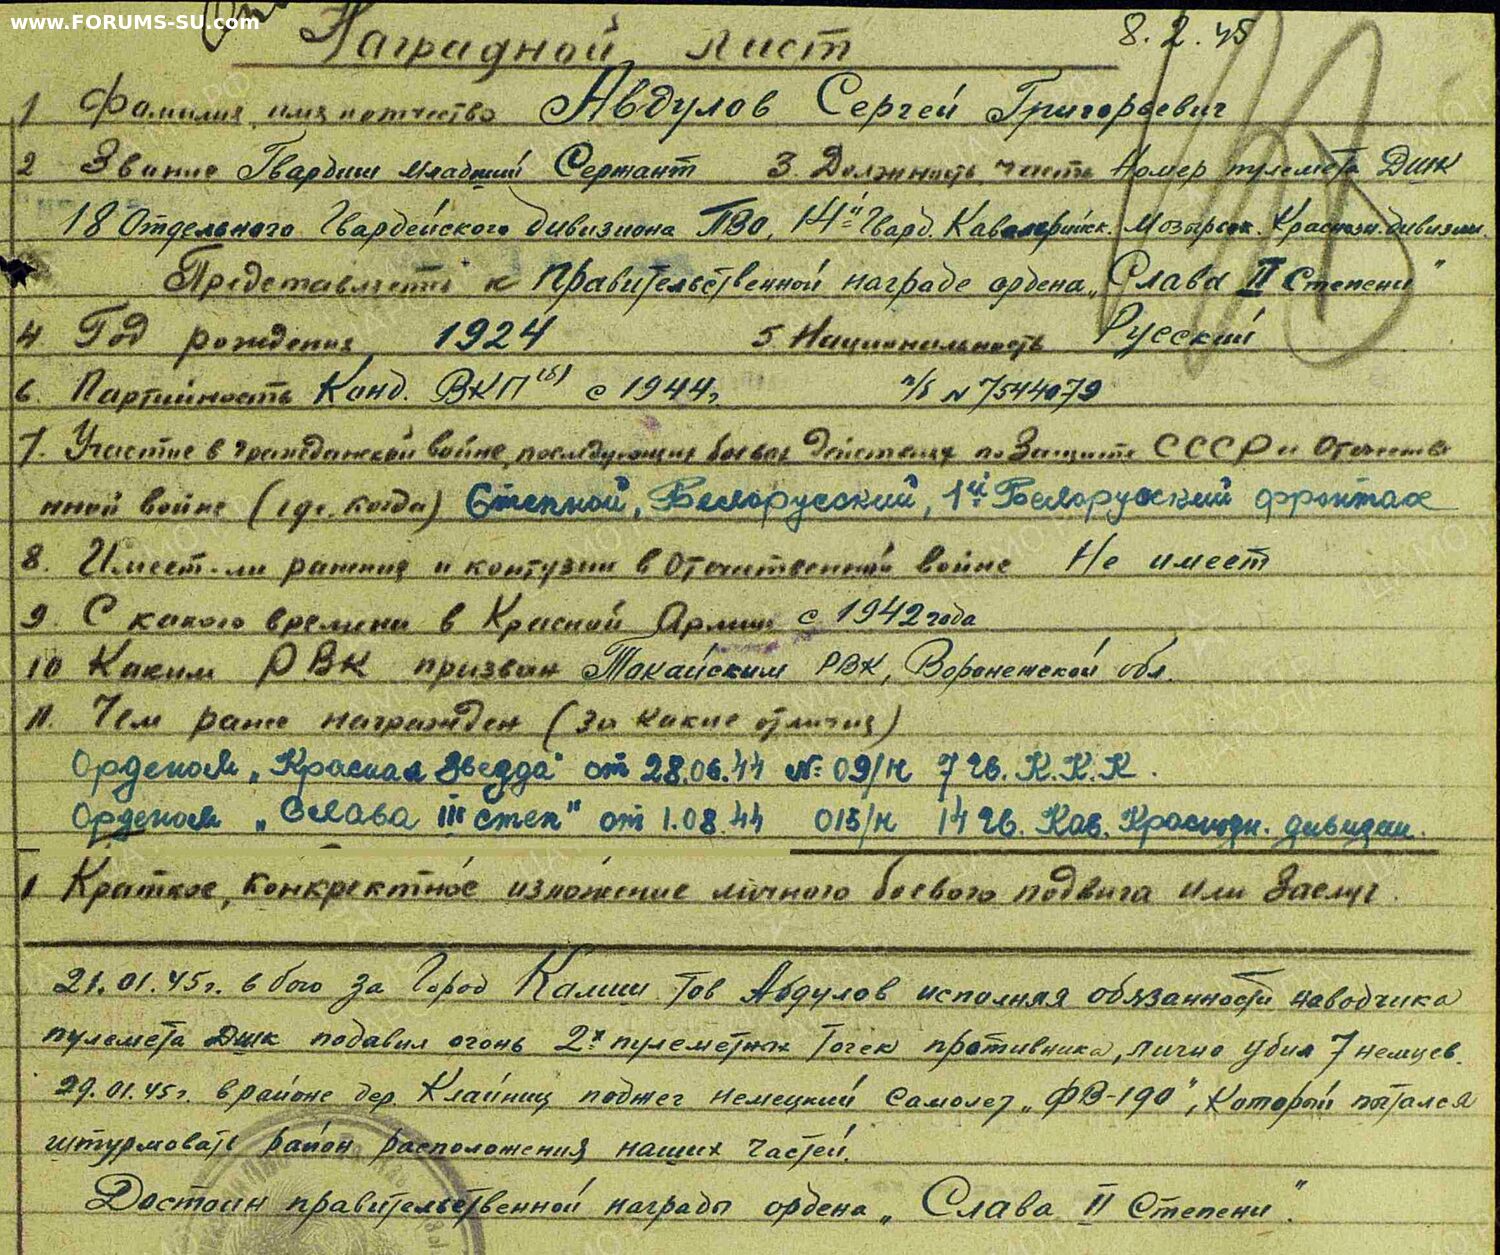 www.FORUMS-SU.com
Наградной лист 8.2.45
1 Фамилия, имя и отчество Авдулов Сергей Григорьевич
2 Звание Гвардии младший Сержант 3. Должность, часть Номер пулемета ДШК
18 Отдельного Гвардейского дивизиона ПВО, 14й Гвард. Кавалерийск. Мозырьск. Краснозн. дивизии.
Представляется к правительственной награде ордена „Слава II Степени"
4. Год рождения 1924 5. Национальность Русский
6. Партийность Канд. ВКП(б) с 1944г. п/б № 7544079
7. Участие в гражданской войне, последующих боевых действиях по защите СССР и отечестве
нной войне (где, когда) Степной, Белорусский, 1й Белорусский фронтах
8. Имеет-ли ранения и контузии в отечественной войне Не имеет
9. С какого времени в Красной Армии с 1942 года
10 Каким РВК призван Токайским РВК, Воронежской обл.
11. Чем ранее награжден (за какие отличия)
Орденом „Красная Звезда" от 28.06.44 №: 09/н 7 Гв. К.К.К.
Орденом „Слава III степ" от 1.08.44 015/н 14 Гв. Кав. Краснозн. дивизии.
1 Краткое, конкретное изложение личного боевого подвига или заслуг.
21.01.45г. в бою за город Калиш тов Авдулов исполняя обязанности наводчика
пулемета ДШК подавил огонь 2х пулеметных точек противника, лично убил 7 немцев.
29.01.45г. в районе дер. Клайниц поджег немецкий самолет „ФВ-190", который пытался
штурмовать район расположения наших частей.
Достоин правительственной награды ордена „Слава II Степени".